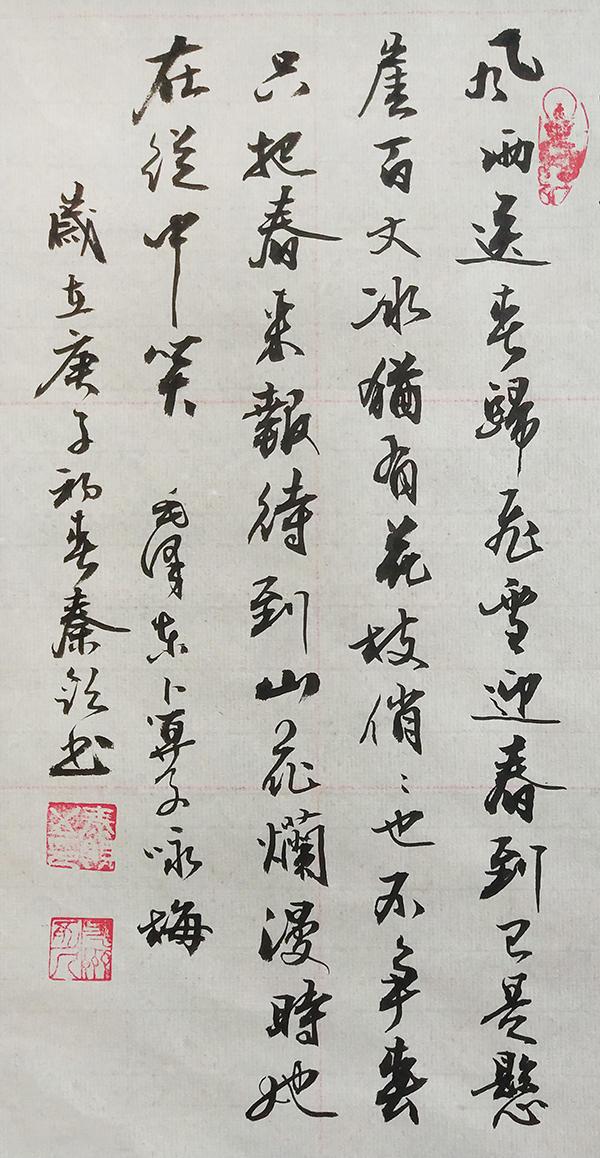 風雨送春歸飛雪迎春到已是懸
崖百丈冰猶有花枝俏俏也不争春
只把春來報待到山花爛漫時她
在從中笑
毛澤東卜算子咏梅
歲在庚子初春秦欽书